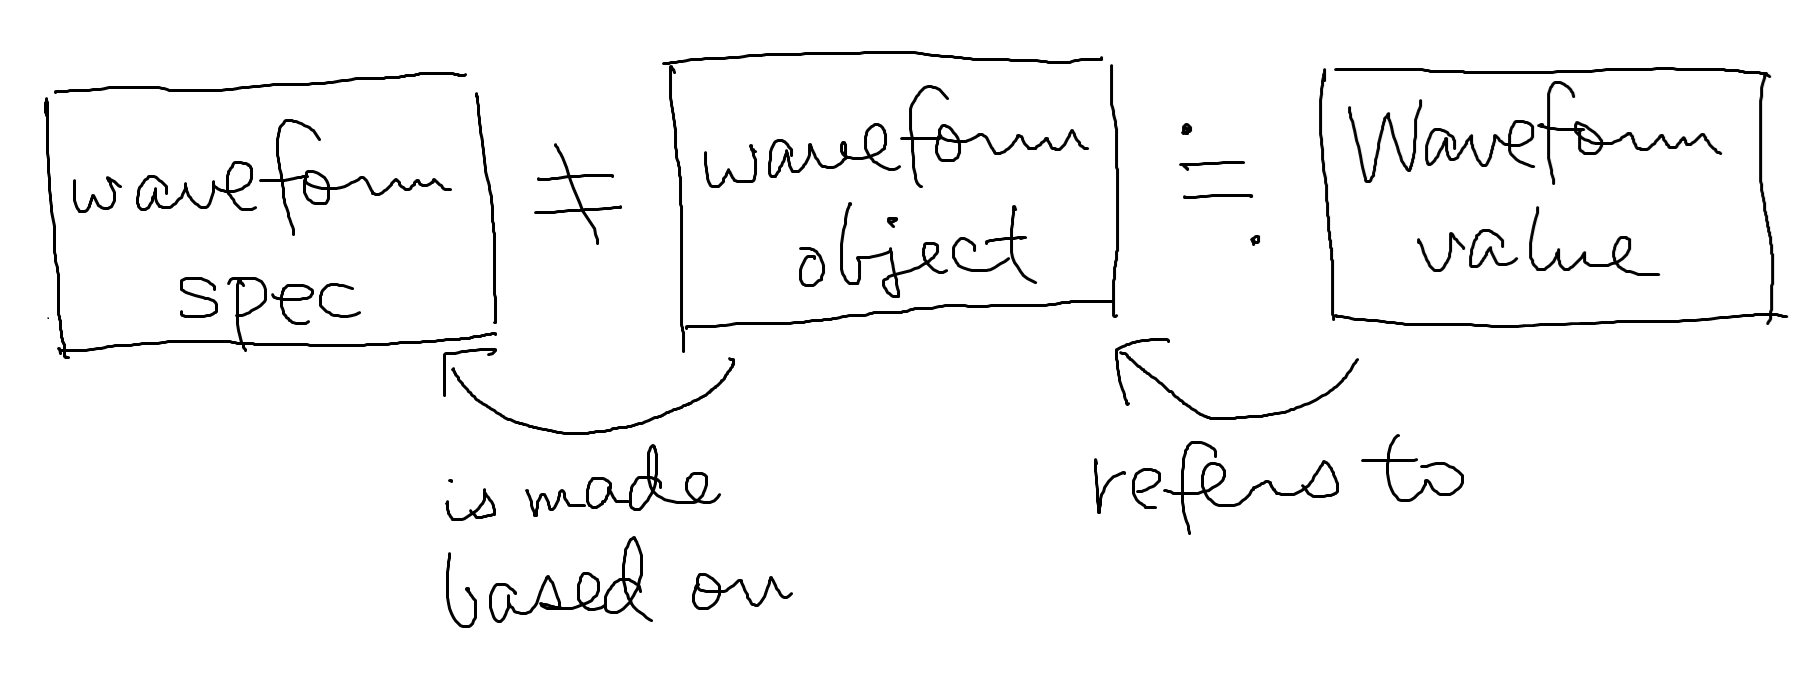 waveform
spec
≠
waveform
object
≒
Waveform
value
is made
based on
refers to